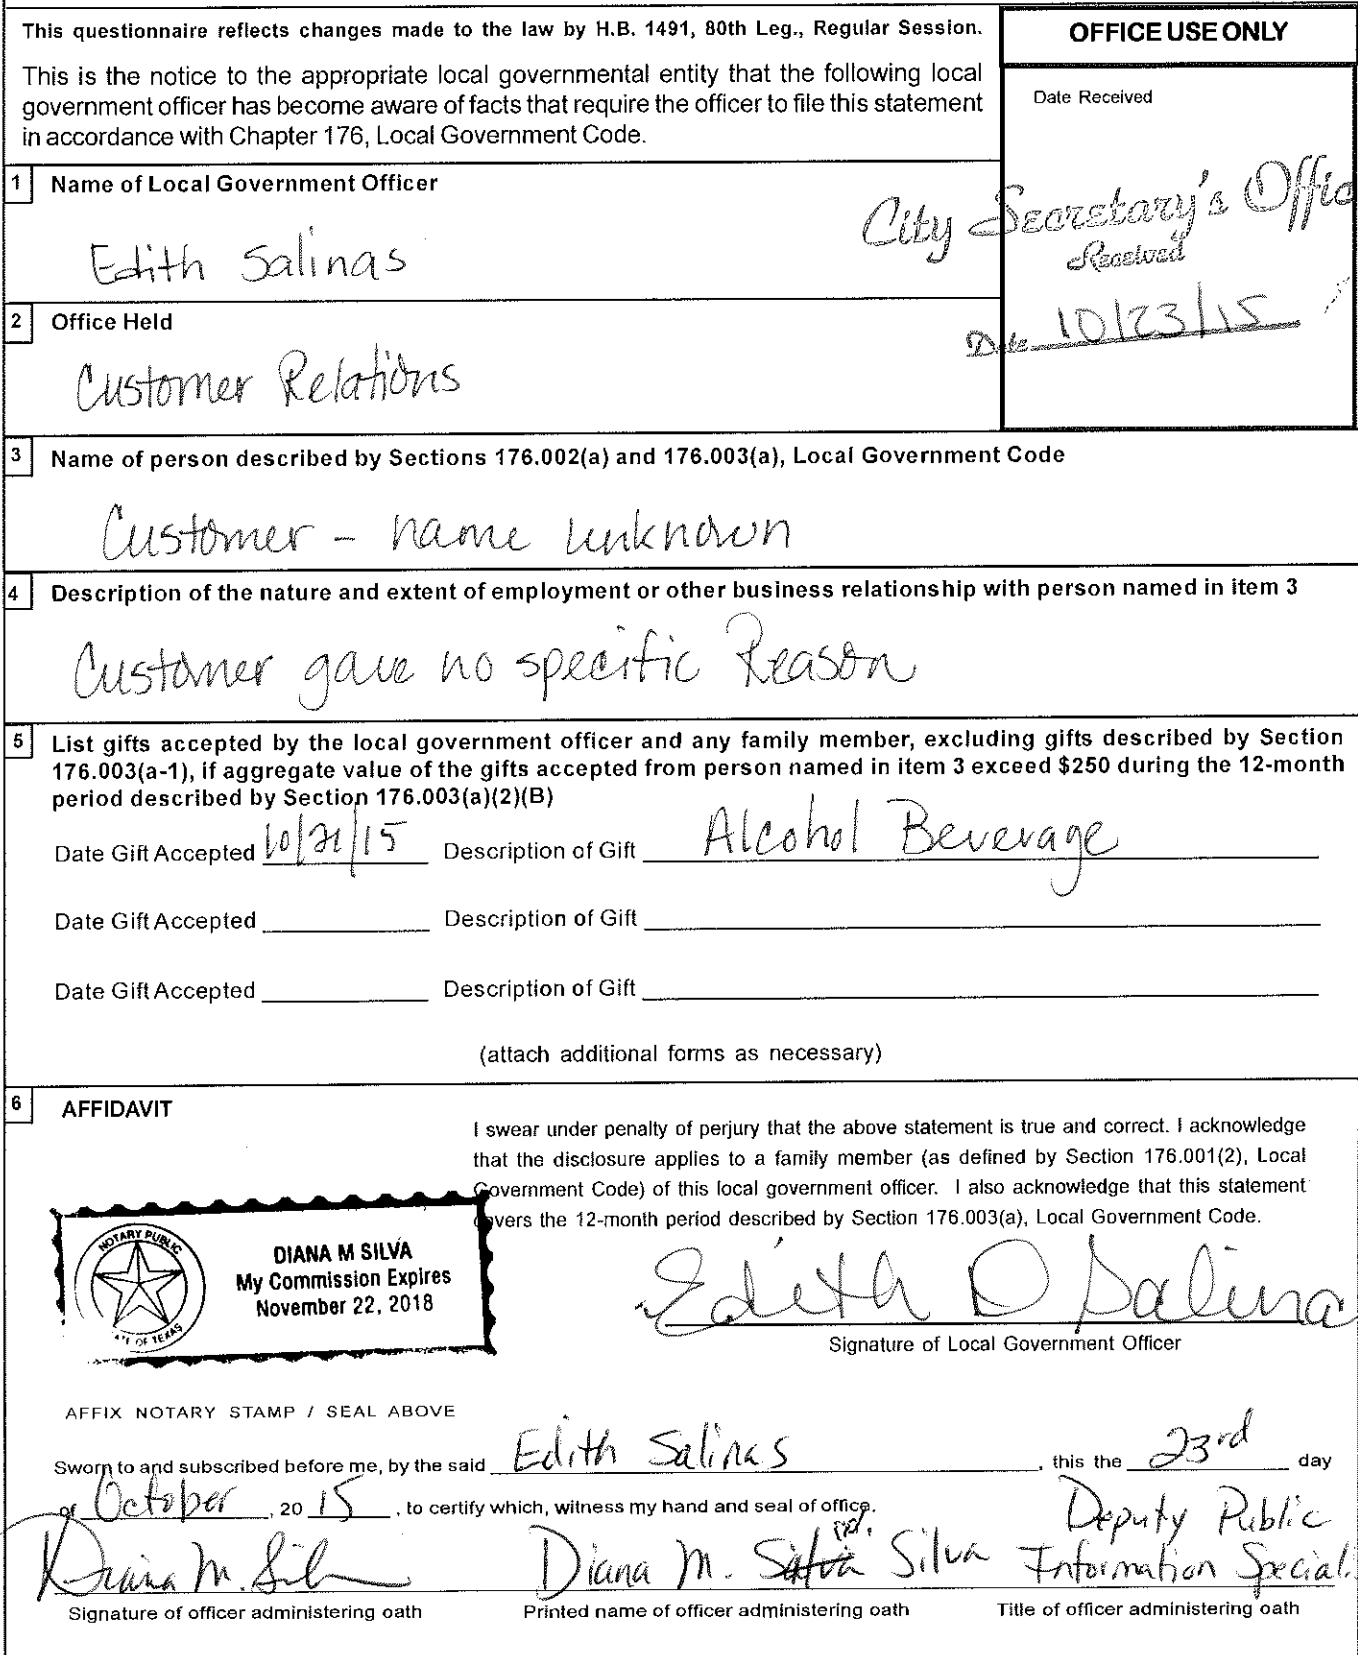 This questionnaire reflects changes made to the law by H.B. 1491, 80th Leg., Regular Session.
This is the notice to the appropriate local governmental entity that the following local
government officer has become aware of facts that require the officer to file this statement
in accordance with Chapter 176, Local Government Code.
OFFICE USE ONLY
Date Received
City Secretary's Offic
Received
Date 10/23/15
1 Name of Local Government Officer
Edith Salinas
2 Office Held
Customer Relations
3 Name of person described by Sections 176.002(a) and 176.003(a), Local Government Code
Customer - name unknown
4 Description of the nature and extent of employment or other business relationship with person named in item 3
Customer gave no specific Reason
5 List gifts accepted by the local government officer and any family member, excluding gifts described by Section
176.003(a-1), if aggregate value of the gifts accepted from person named in item 3 exceed $250 during the 12-month
period described by Section 176.003(a)(2)(B)
Date Gift Accepted 10/21/15 Description of Gift Alcohol Beverage
Date Gift Accepted Description of Gift
Date Gift Accepted Description of Gift
(attach additional forms as necessary)
6 AFFIDAVIT
I swear under penalty of perjury that the above statement is true and correct. I acknowledge
that the disclosure applies to a family member (as defined by Section 176.001(2), Local
Government Code) of this local government officer. I also acknowledge that this statement
covers the 12-month period described by Section 176.003(a), Local Government Code.
NOTARY PUBLIC
ATE OF TEXAS
DIANA M SILVA
My Commission Expires
November 22, 2018
Edith D Salina
Signature of Local Government Officer
AFFIX NOTARY STAMP / SEAL ABOVE
Sworn to and subscribed before me, by the said Edith Salinas, this the 23rd day
of October, 20 15, to certify which, witness my hand and seal of office.
Diana M. Silva
Diana M. Silva
Deputy Public
Information Special.
Signature of officer administering oath
Printed name of officer administering oath
Title of officer administering oath